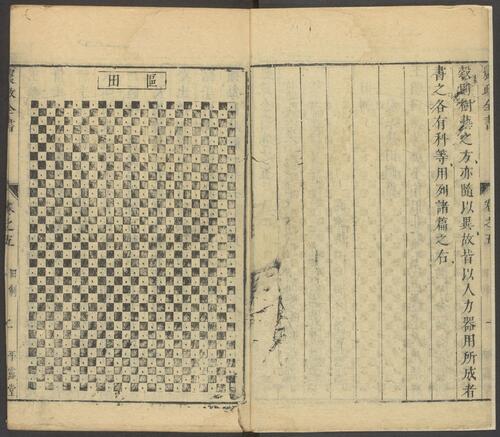 墾闢樹藝之方亦隨以異故皆以人力器用所成者
書之各有科等用列諸篇之右
區田
農政全書
卷之五
田制
平露堂